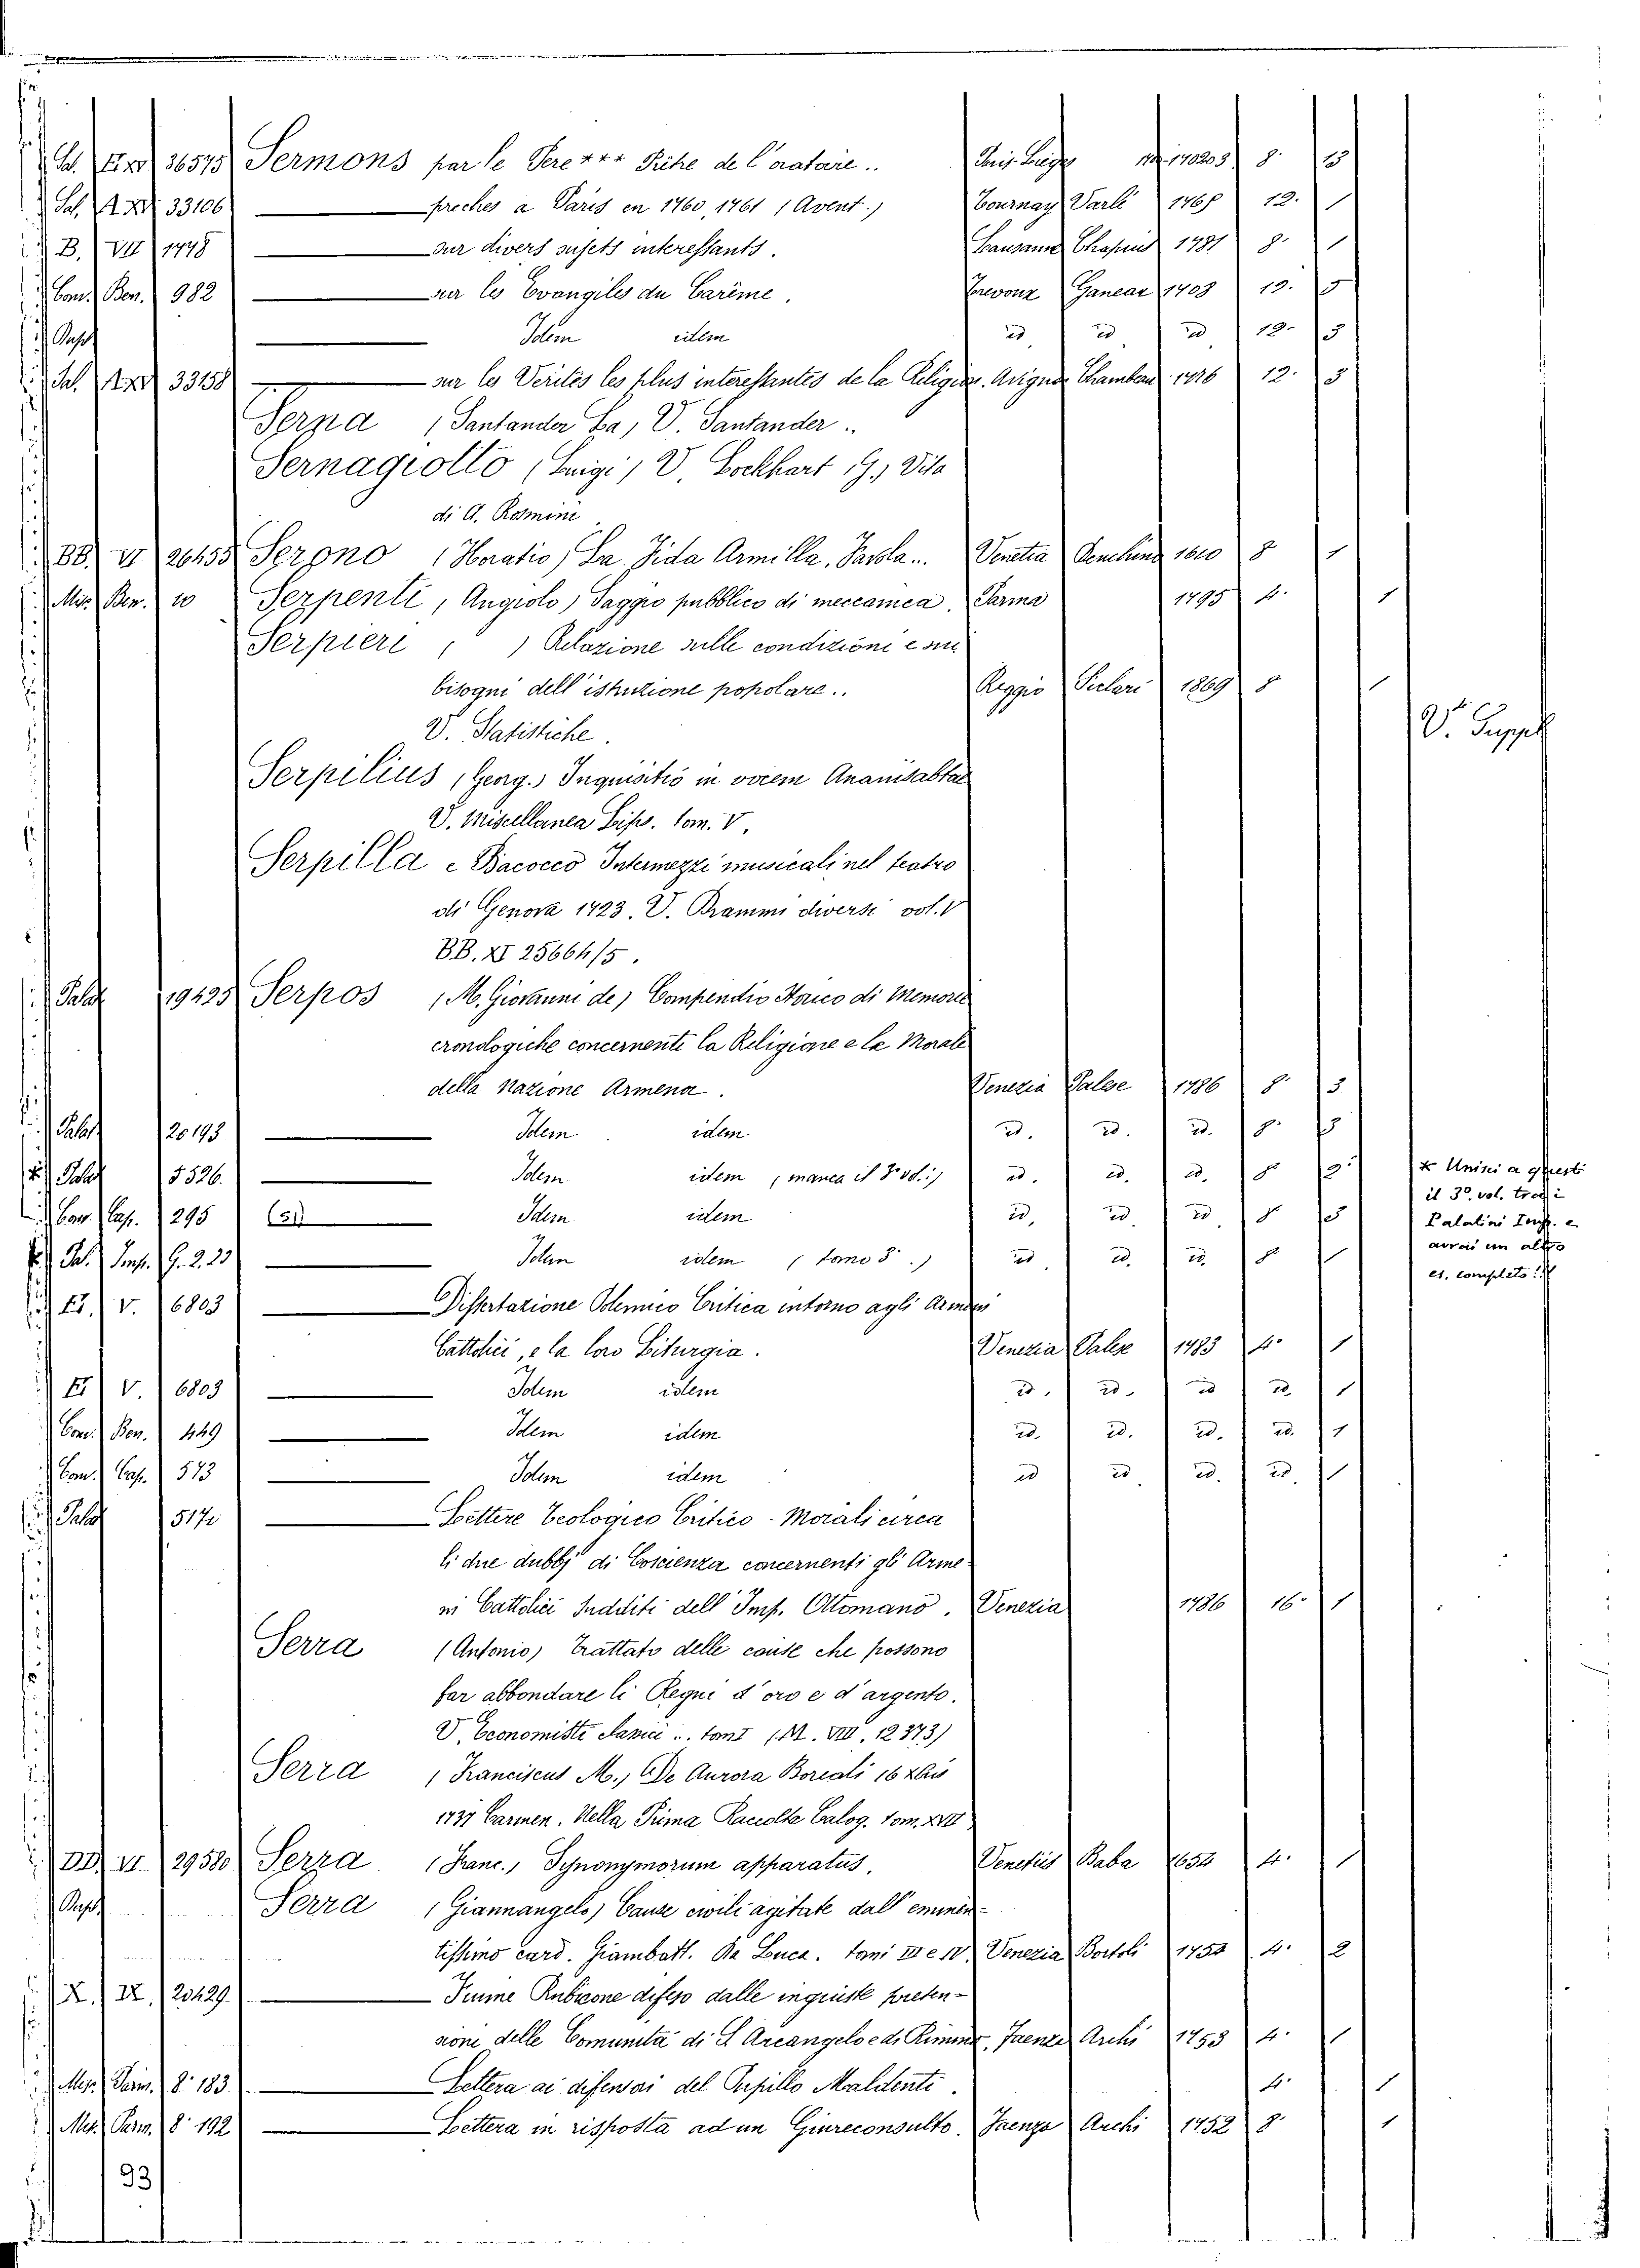 Sal. 36575 Sermons par le Pere *** Prêtre de l'oratoire .. 8. 15
Sal. 33106 preches a Paris en 1760, 1761 (Avent.) Tournay Varlé 1768 12. 1
B. VII 1778 sur divers sujets interessants. Lausanne Chapuis 1781 8. 1
Con. Ben. 982 sur les Evangiles du Carême. Trevoux Ganeau 1708 12. 5
Idem idem id. id id 12. 5
Sal. 33158 sur les Verités les plus interessantes de la Religion. Avignon Chambeau 1776 12. 3
Serna (Santander La) V. Santander ..
Sernagiotto (Luigi) V. Lockhart (G.) Vita
di A. Rosmini
BB. VI 26455 Serono (Horatio) La Fida Armilla, Favola... Venetia 1610 8 1
Mis. Ben. 10 Serpenti (Angiolo) Saggio pubblico di meccanica. Parma 1795 4. 1
Serpieri ( ) Relazione sulle condizioni e sui
bisogni dell'istruzione popolare.. Reggio 1869 8 1
V. Statistiche.
V. Suppl
Serpilius (Georg.) Inquisitio in vocem Ananisabtas
V. Miscellanea Lips. tom. V.
Serpilla e Bacocco Intermezzi musicali nel teatro
di Genova 1723. V. Drammi diversi vol. V
BB. XI 25664/5.
Palat 19425 Serpos (M. Giovanni de) Compendio storico di Memorie
cronologiche concernenti la Religione e la Morale
della Nazione Armena. Venezia Palese 1786 8. 3
Palat 20193 Idem idem id. id. id. 8. 3
* Palat 5526. Idem idem (manca il 3° vol.) id. id. id. 8 2.
Con. Cap. 295 (51) Idem idem id, id id 8 3
* Pal. Imp. G. 2. 23 Idem idem (tomo 3°.) id id. id. 8 1
* Unisi a questi
il 3°. vol. tra i
Palatini Imp. e
avrai un altro
es. completo.
EE. V. 6803 Dissertazione Polemico Critica intorno agli Armeni
Cattolici, e la loro Liturgia. Venezia Palese 1783 4. 1
EE V. 6803 Idem idem id. id. id id. 1
Con. Ben. 449 Idem idem id. id. id. id. 1
Con. Cap. 573 Idem idem id id. id. id. 1
Palat 5172 Lettere Teologico Critico-Morali circa
li due dubbj di Coscienza concernenti gli Arme-
ni Cattolici Sudditi dell'Imp. Ottomano. Venezia 1786 16. 1
Serra (Antonio) Trattato delle cause che possono
far abbondare li Regni d'oro e d'argento.
V. Economisti .. tom I (M. VIII. 12373)
Serra (Franciscus M.) De Aurora Boreali 16 Xbris
1737 Carmen. Nella Prima Raccolta Calog. tom. XVII
DD. VI. 29580 Serra (Franc.) Synonymorum apparatus. Venetiis Baba 1654 4. 1
Serra (Giannangelo) Cause civili agitate dall'eminen-
tissimo card. Giambatt. De Luca. tomi III e IV. Venezia Bortoli 1754 4. 2
X. IX. 20429. Fiume Rubicone difeso dalle ingiuste preten-
sioni delle Comunità di S. Arcangelo e di Rimini. Faenza Archi 1753 4. 1
Mis. Parm. 8. 183 Lettera ai difensori del Pupillo Maldenti. 4. 1
Mis. Parm. 8. 192 Lettera in risposta ad un Giureconsulto. Faenza Archi 1752 8. 1
93